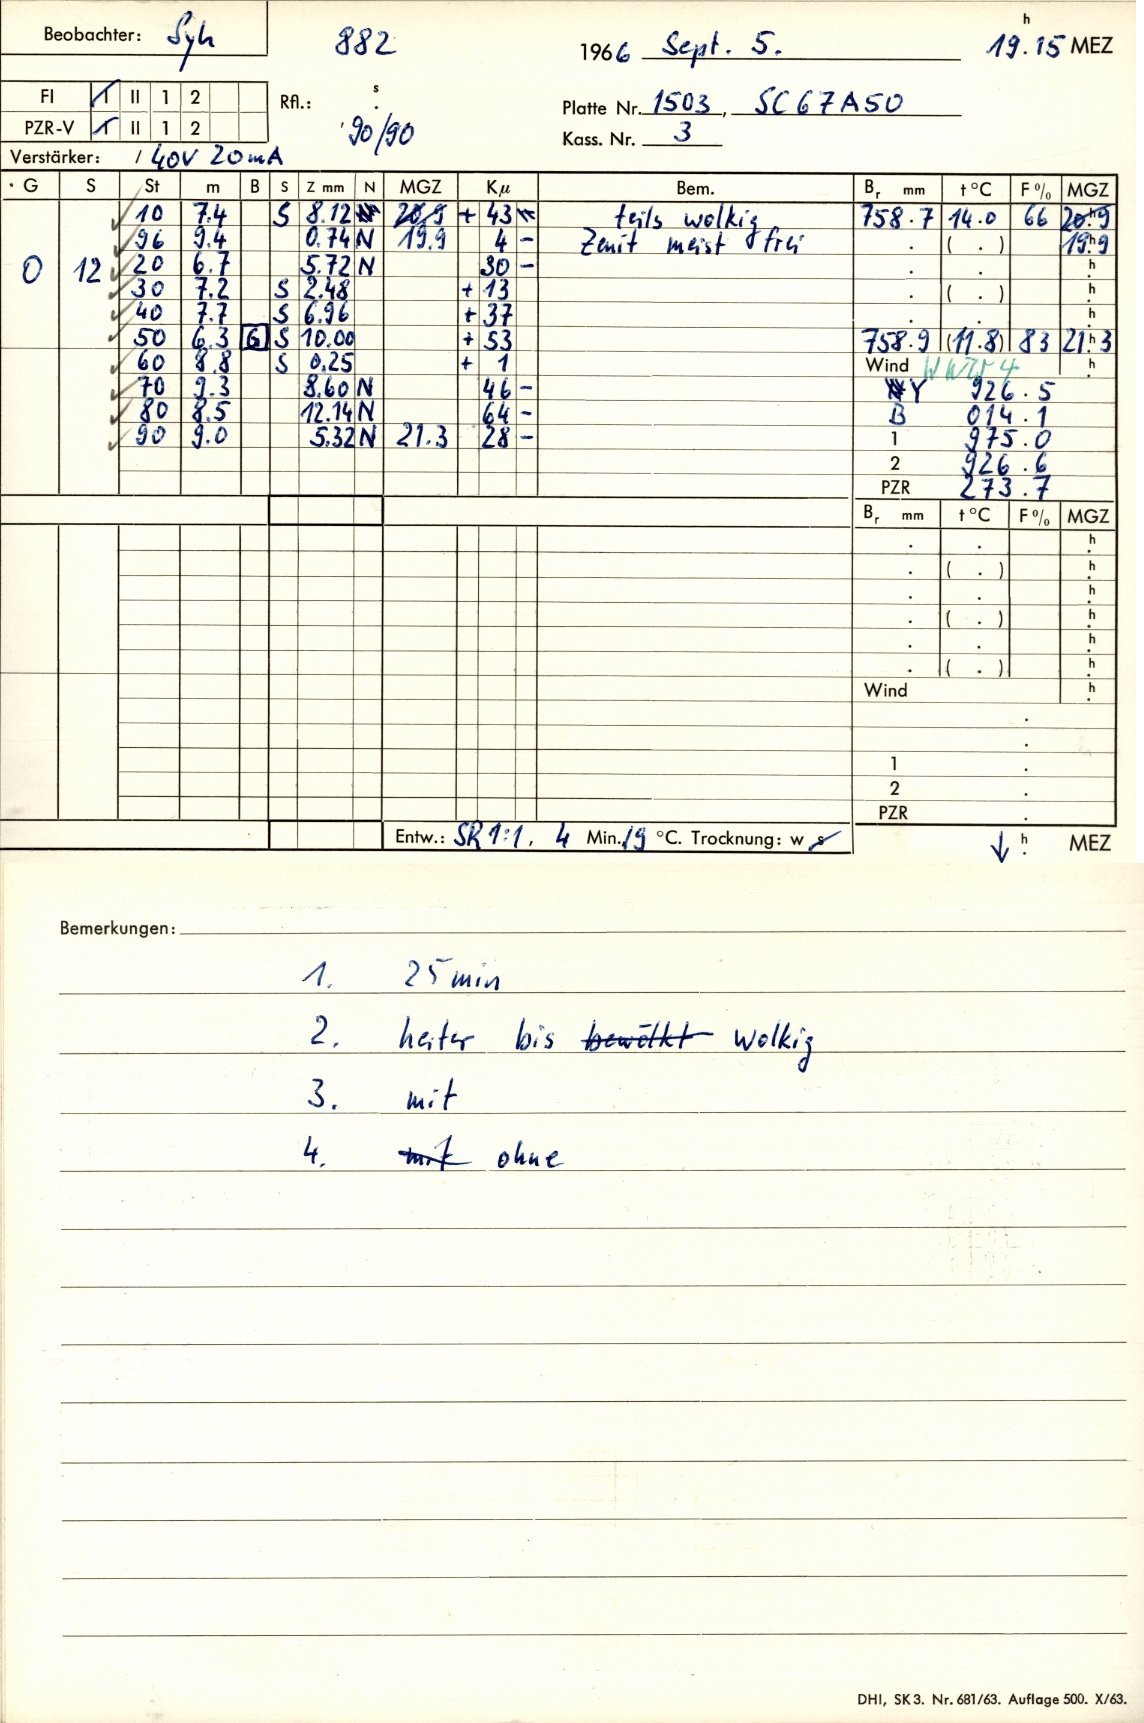 Beobachter: Syh 882 1966 Sept. 5. 19.15 h MEZ
FI I II 1 2 Rfl.: s . Platte Nr. 1503, SC67A50
PZR-V I II 1 2 90/90 Kass. Nr. 3
Verstärker: / 40V 20mA
G S St m B S Z mm N MGZ Kμ Bem. Br mm t °C F % MGZ
10 7.4 S 8.12 20.9 + 43 teils wolkig 758.7 14.0 66 20h9
96 9.4 0.74 N 19.9 4 - Zenit meist frei . ( . ) 19h9
0 12 20 6.7 5.72 N 30 - . . h
30 7.2 S 2.48 + 13 . ( . ) h
40 7.7 S 6.96 + 37 . . h
50 6.3 G S 10.00 + 53 758.9 (11.8) 83 21h3
60 8.8 S 0.25 + 1 Wind WNW 4 h
70 9.3 8.60 N 46 - Y 926.5
80 8.5 12.14 N 64 - B 014.1
90 9.0 5.32 N 21.3 28 - 1 975.0
2 926.6
PZR 273.7
Br mm t °C F % MGZ
. . h
. ( . ) h
. . h
. ( . ) h
. . h
. ( . ) h
Wind h
.
.
1 .
2 .
PZR .
Entw.: SR 1:1, 4 Min. 19 °C. Trocknung: w s ↓ h . MEZ
Bemerkungen:
1. 25 min
2. heiter bis bewölkt wolkig
3. mit
4. mit ohne
DHI, SK 3. Nr. 681/63. Auflage 500. X/63.